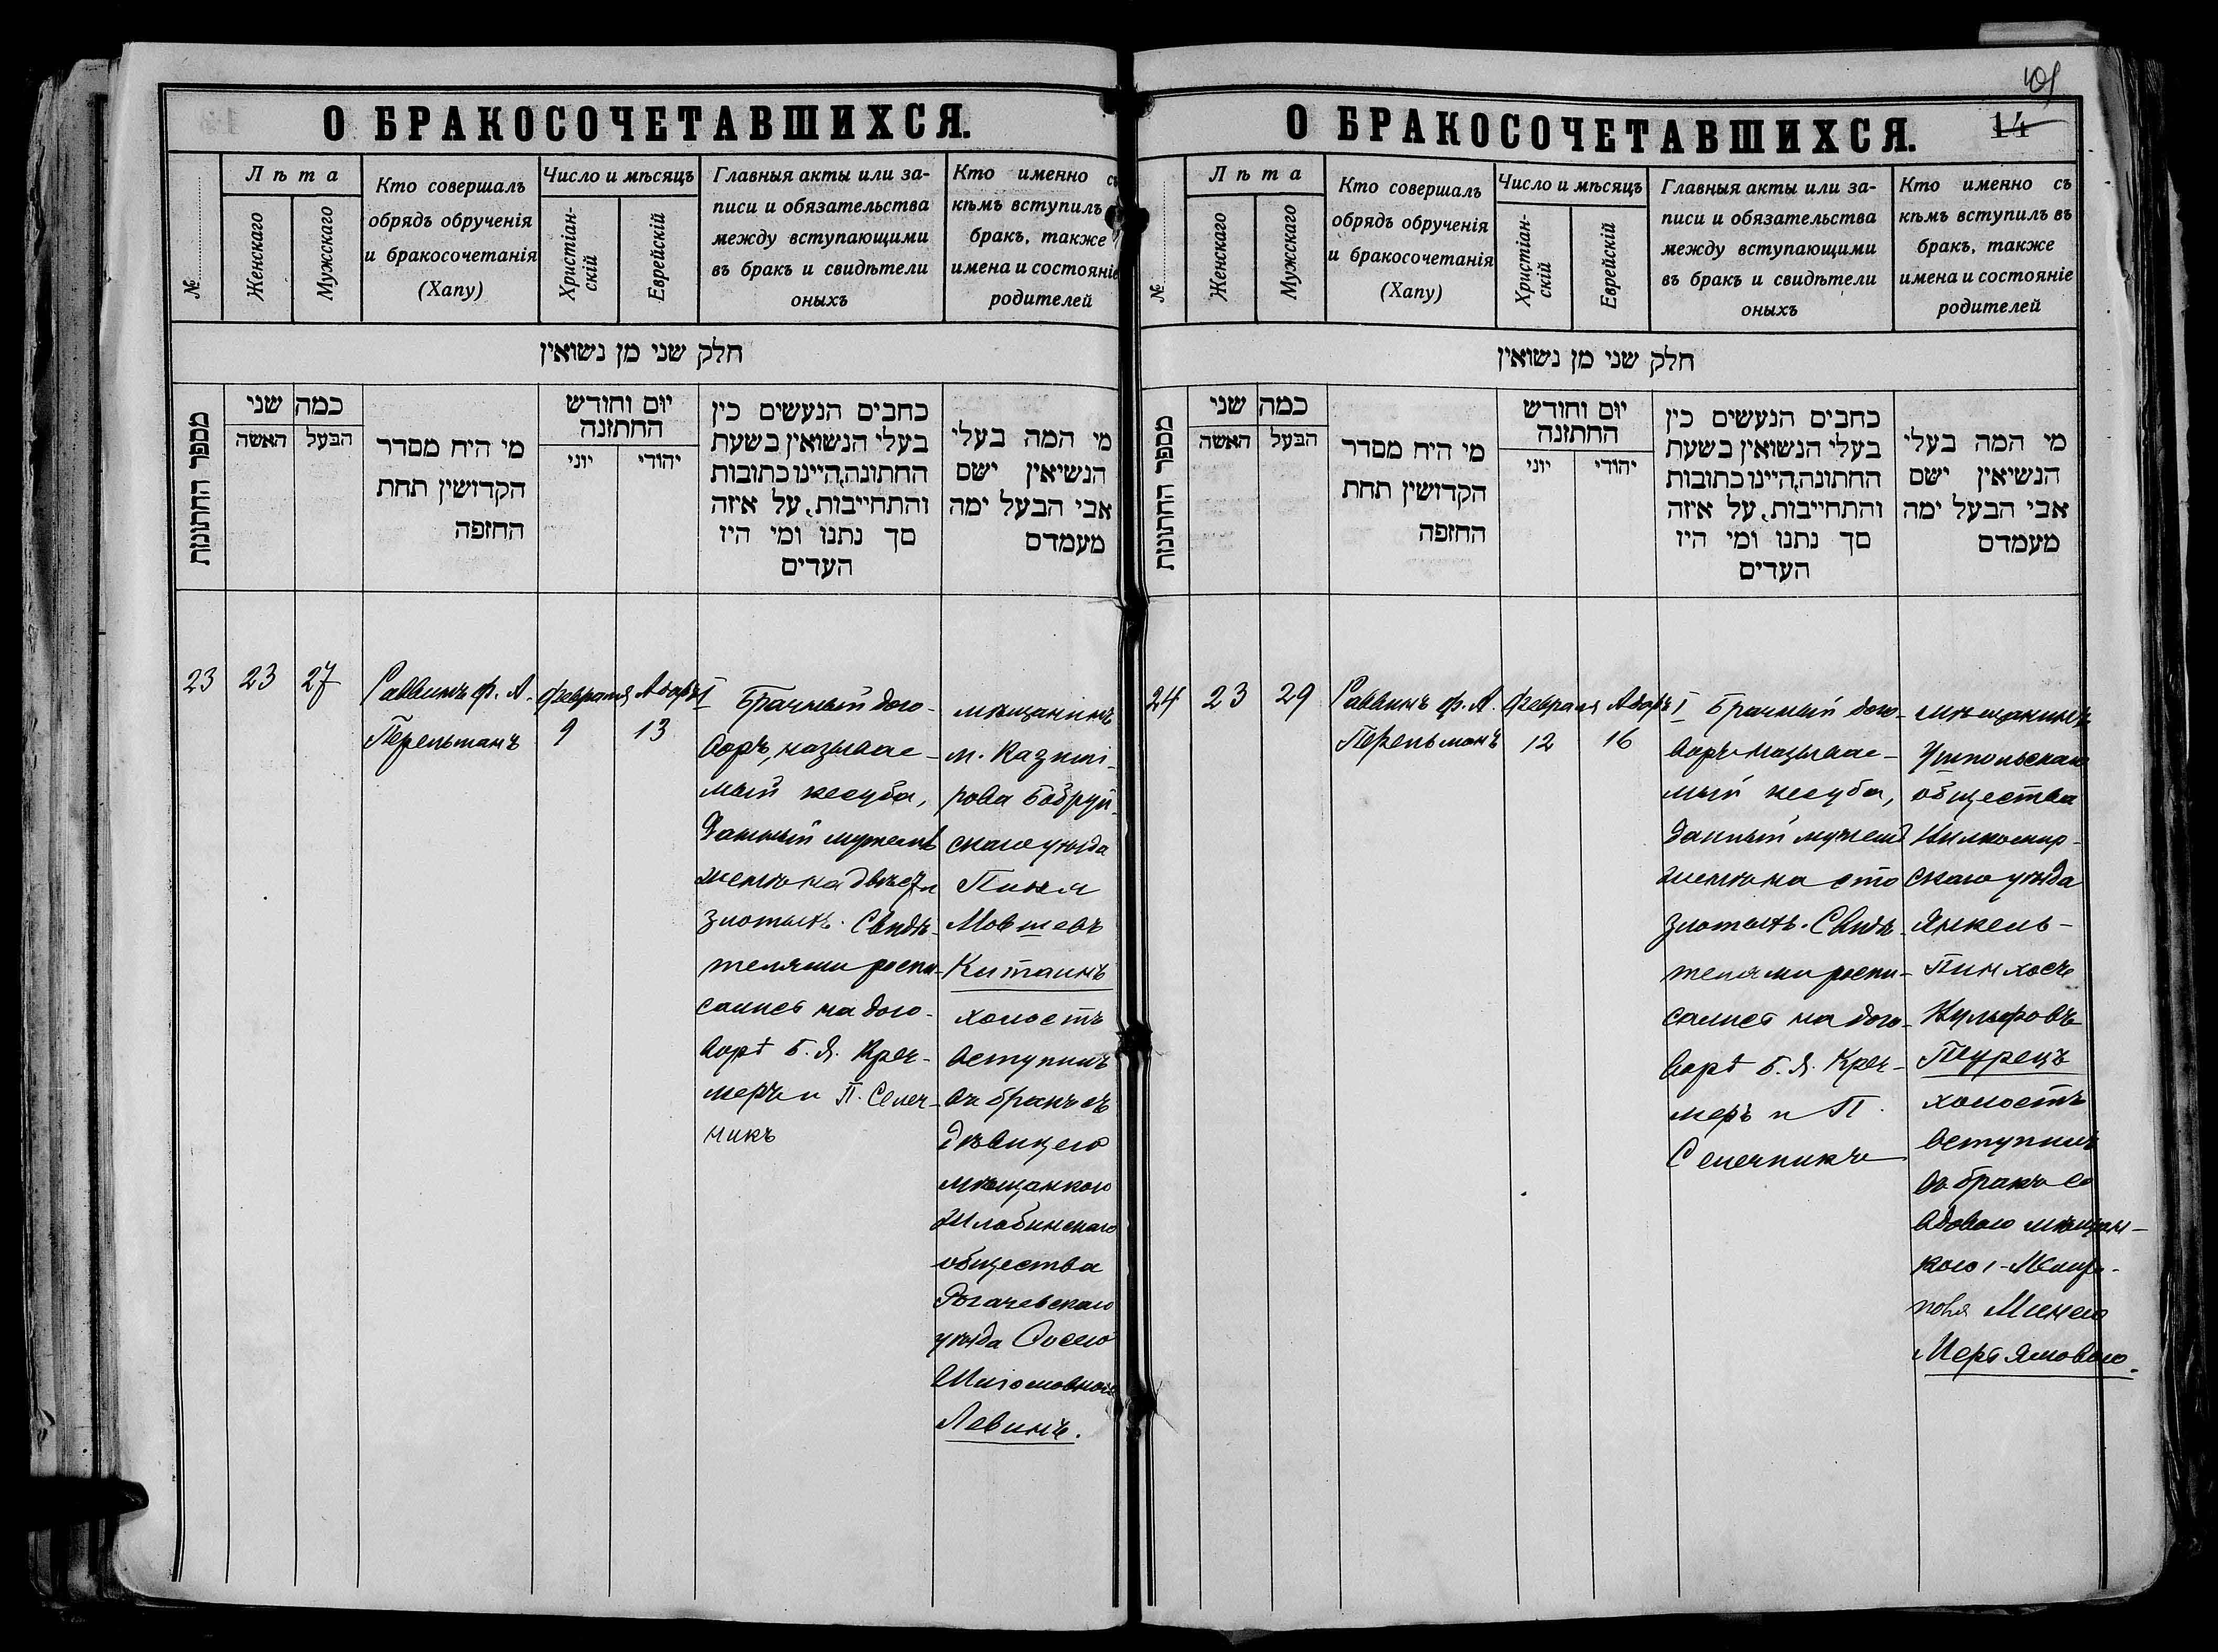 О БРАКОСОЧЕТАВШИХСЯ.
№
Лѣта
Женскаго
Мужскаго
Кто совершалъ
обрядъ обрученія
и бракосочетанія
(Хапу)
Число и мѣсяцъ
Христіан-
скій
Еврейскій
Главныя акты или за-
писи и обязательства
между вступающими
въ бракъ и свидѣтели
оныхъ
Кто именно съ
кѣмъ вступилъ
бракъ, также
имена и состояніе
родителей
חלק שני מן נשואין
מספר החתונות
כמה שני
האשה
הבעל
מי היח מסדר
הקדושין תחת
החזפה
יום וחודש
החתזנה
יוני
יהודי
כחבים הנעשים כין
בעלי הנשואין בשעת
החתונה, היינו כתובות
והתחייבות, על איזה
סך נתנו ומי היז
העדים
מי המה בעלי
הנשיאין ישם
אבי הבעל ימה
מעמדם
23
23
27
Раввинъ Ф. А.
Перельманъ
Февраля
9
Адаръ I
13
Брачный дого-
воръ, называе-
мый кесуба,
данный мужемъ
женѣ на двѣсти
злотыхъ. Свидѣ-
телями распи-
сались на дого-
ворѣ Б. Я. Креч-
меръ и П. Селеч-
никъ
мѣщанинъ
м. Казими-
рова Бобруй-
скаго уѣзда
Пиня
Мовшевъ
Китаинъ
холостъ
вступилъ
въ бракъ съ
дѣвицею
мѣщанкою
Жлобинскаго
общества
Рогачевскаго
уѣзда Сосею
Левинъ.
О БРАКОСОЧЕТАВШИХСЯ.
14
№
Лѣта
Женскаго
Мужскаго
Кто совершалъ
обрядъ обрученія
и бракосочетанія
(Хапу)
Число и мѣсяцъ
Христіан-
скій
Еврейскій
Главныя акты или за-
писи и обязательства
между вступающими
въ бракъ и свидѣтели
оныхъ
Кто именно съ
кѣмъ вступилъ въ
бракъ, также
имена и состояніе
родителей
חלק שני מן נשואין
מספר החתונות
כמה שני
האשה
הבעל
מי היח מסדר
הקדושין תחת
החזפה
יום וחודש
החתזנה
יוני
יהודי
כחבים הנעשים כין
בעלי הנשואין בשעת
החתונה, היינו כתובות
והתחייבות, על איזה
סך נתנו ומי היז
העדים
מי המה בעלי
הנשיאין ישם
אבי הבעל ימה
מעמדם
24
23
29
Раввинъ Ф. А.
Перельманъ
Февраля
12
Адаръ I
16
Брачный дого-
воръ называе-
мый кесуба,
данный мужемъ
женѣ на сто
злотыхъ. Свидѣ-
телями распи-
сались на дого-
ворѣ Б. Я. Креч-
меръ и П.
Селечникъ
мѣщанинъ
Ушпольскаго
общества
Вилкомир-
скаго уѣзда
Янкель-
Пинхосъ
Вульфовъ
Турецъ
холостъ
вступилъ
въ бракъ со
вдовою мѣщан-
кою
Минею